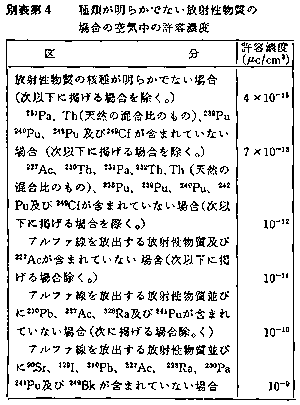 別表第4　種類が明らかでない放射性物質の
場合の空気中の許容濃度
区　分
許容濃度
(μc/cm³)
放射性物質の核種が明らかでない場合
(次以下に掲げる場合を除く。)
²³¹Pa、Th(天然の混合比のもの)、²³⁹Pu
²⁴⁰Pu、²⁴²Pu及び²⁴⁹Cfが含まれていない
場合 (次以下に掲げる場合を除く。) 7×10⁻¹³
²²⁷Ac、²³⁰Th、²³¹Pa、²³²Th、Th (天然の
混合比のもの)、²³⁸Pu、²³⁹Pu、²⁴⁰Pu、²⁴²
Pu及び²⁴⁹Cfが含まれていない場合(次以
下に掲げる場合を除く。) 10⁻¹²
アルファ線を放出する放射性物質及び
²²⁷Acが含まれていない場合(次以下に掲
げる場合除く。) 10⁻¹¹
アルファ線を放出する放射性物質並び
に²¹⁰Pb、²²⁷Ac、²²⁸Ra及び²⁴¹Puが含まれ
ていない場合(次に掲げる場合除。く) 10⁻¹⁰
アルファ線を放出する放射性物質並び
に⁹⁰Sr、¹²⁹I、²¹⁰Pb、²²⁷Ac、²²⁸Ra、²³⁰Pa
²⁴¹Pu及び²⁴⁹Bkが含まれていない場合 10⁻⁹